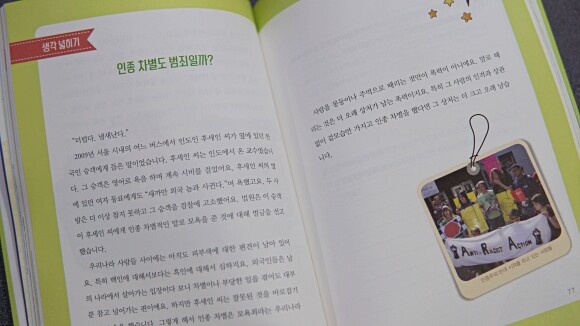 생각 넓히기
인종 차별도 범죄일까?
"더럽다. 냄새난다."
2009년 서울 시내의 어느 버스에서 인도인 후세인 씨가 옆에 있던 한
국인 승객에게 들은 말이었습니다. 후세인 씨는 인도에서 온 교수였습니
다. 그 승객은 영어로 욕을 하며 계속 시비를 걸었어요. 후세인 씨의 옆
에 있던 여자 동료에게도 "새까만 외국 놈과 사귄다."며 욕했고요. 두 사
람은 더 이상 참지 못하고 그 승객을 경찰에 고소했어요. 법원은 이 승객
이 후세인 씨에게 인종 차별적인 말로 모욕을 준 것에 대해 벌금을 선고
했습니다.
우리나라 사람들 사이에는 아직도 피부색에 대한 편견이 남아 있어
요. 특히 백인에 대해서보다는 흑인에 대해서 심하지요. 외국인들은 남
의 나라에서 살아가는 입장이다 보니 차별이나 부당한 일을 겪어도 대부
분 참고 넘어가는 편이에요. 하지만 후세인 씨는 잘못된 것을 바로잡기
했습니다. 그렇게 해서 인종 차별은 모욕죄라는 우리나라
사람을 몽둥이나 주먹으로 때리는 것만이 폭력이 아니에요. 말로 때
리는 것은 더 오래 상처가 남는 폭력이지요. 특히 그 사람의 인격과 상관
없이 겉모습만 가지고 인종 차별을 했다면 그 상처는 더 크고 오래 남습
니다.
ANTI-RACIST ACTION
77